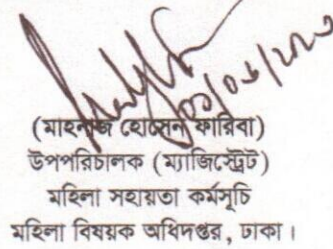 ০১/০৬/২০২৩
(মাহনাজ হোসেন ফারিবা)
উপপরিচালক (ম্যাজিস্ট্রেট)
মহিলা সহায়তা কর্মসূচি
মহিলা বিষয়ক অধিদপ্তর, ঢাকা।